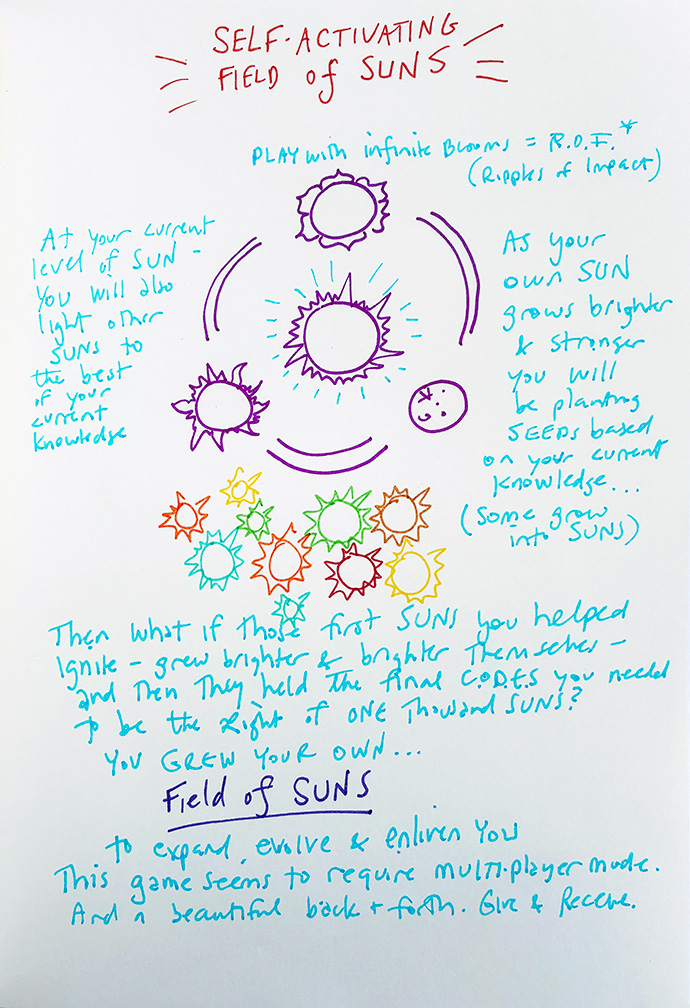 SELF-ACTIVATING
FIELD of SUNS
PLAY with infinite Blooms = R.O.I.*
(Ripples of Impact)
At your current
level of SUN -
you will also
light other
SUNS to
the best
of your
current
knowledge
As your
own SUN
grows brighter
& stronger
you will
be planting
SEEDS based
on your current
knowledge...
(Some grow
into SUNS)
Then what if those first SUNS you helped
Ignite - grew brighter & brighter themselves -
and Then They held The final C.O.D.E.S you needed
to be the Light of ONE Thousand SUNS?
YOU GREW YOUR OWN...
Field of SUNS
to expand, evolve & enliven You
This game seems to require multi-player mode.
And a beautiful back + forth. Give & Receive.